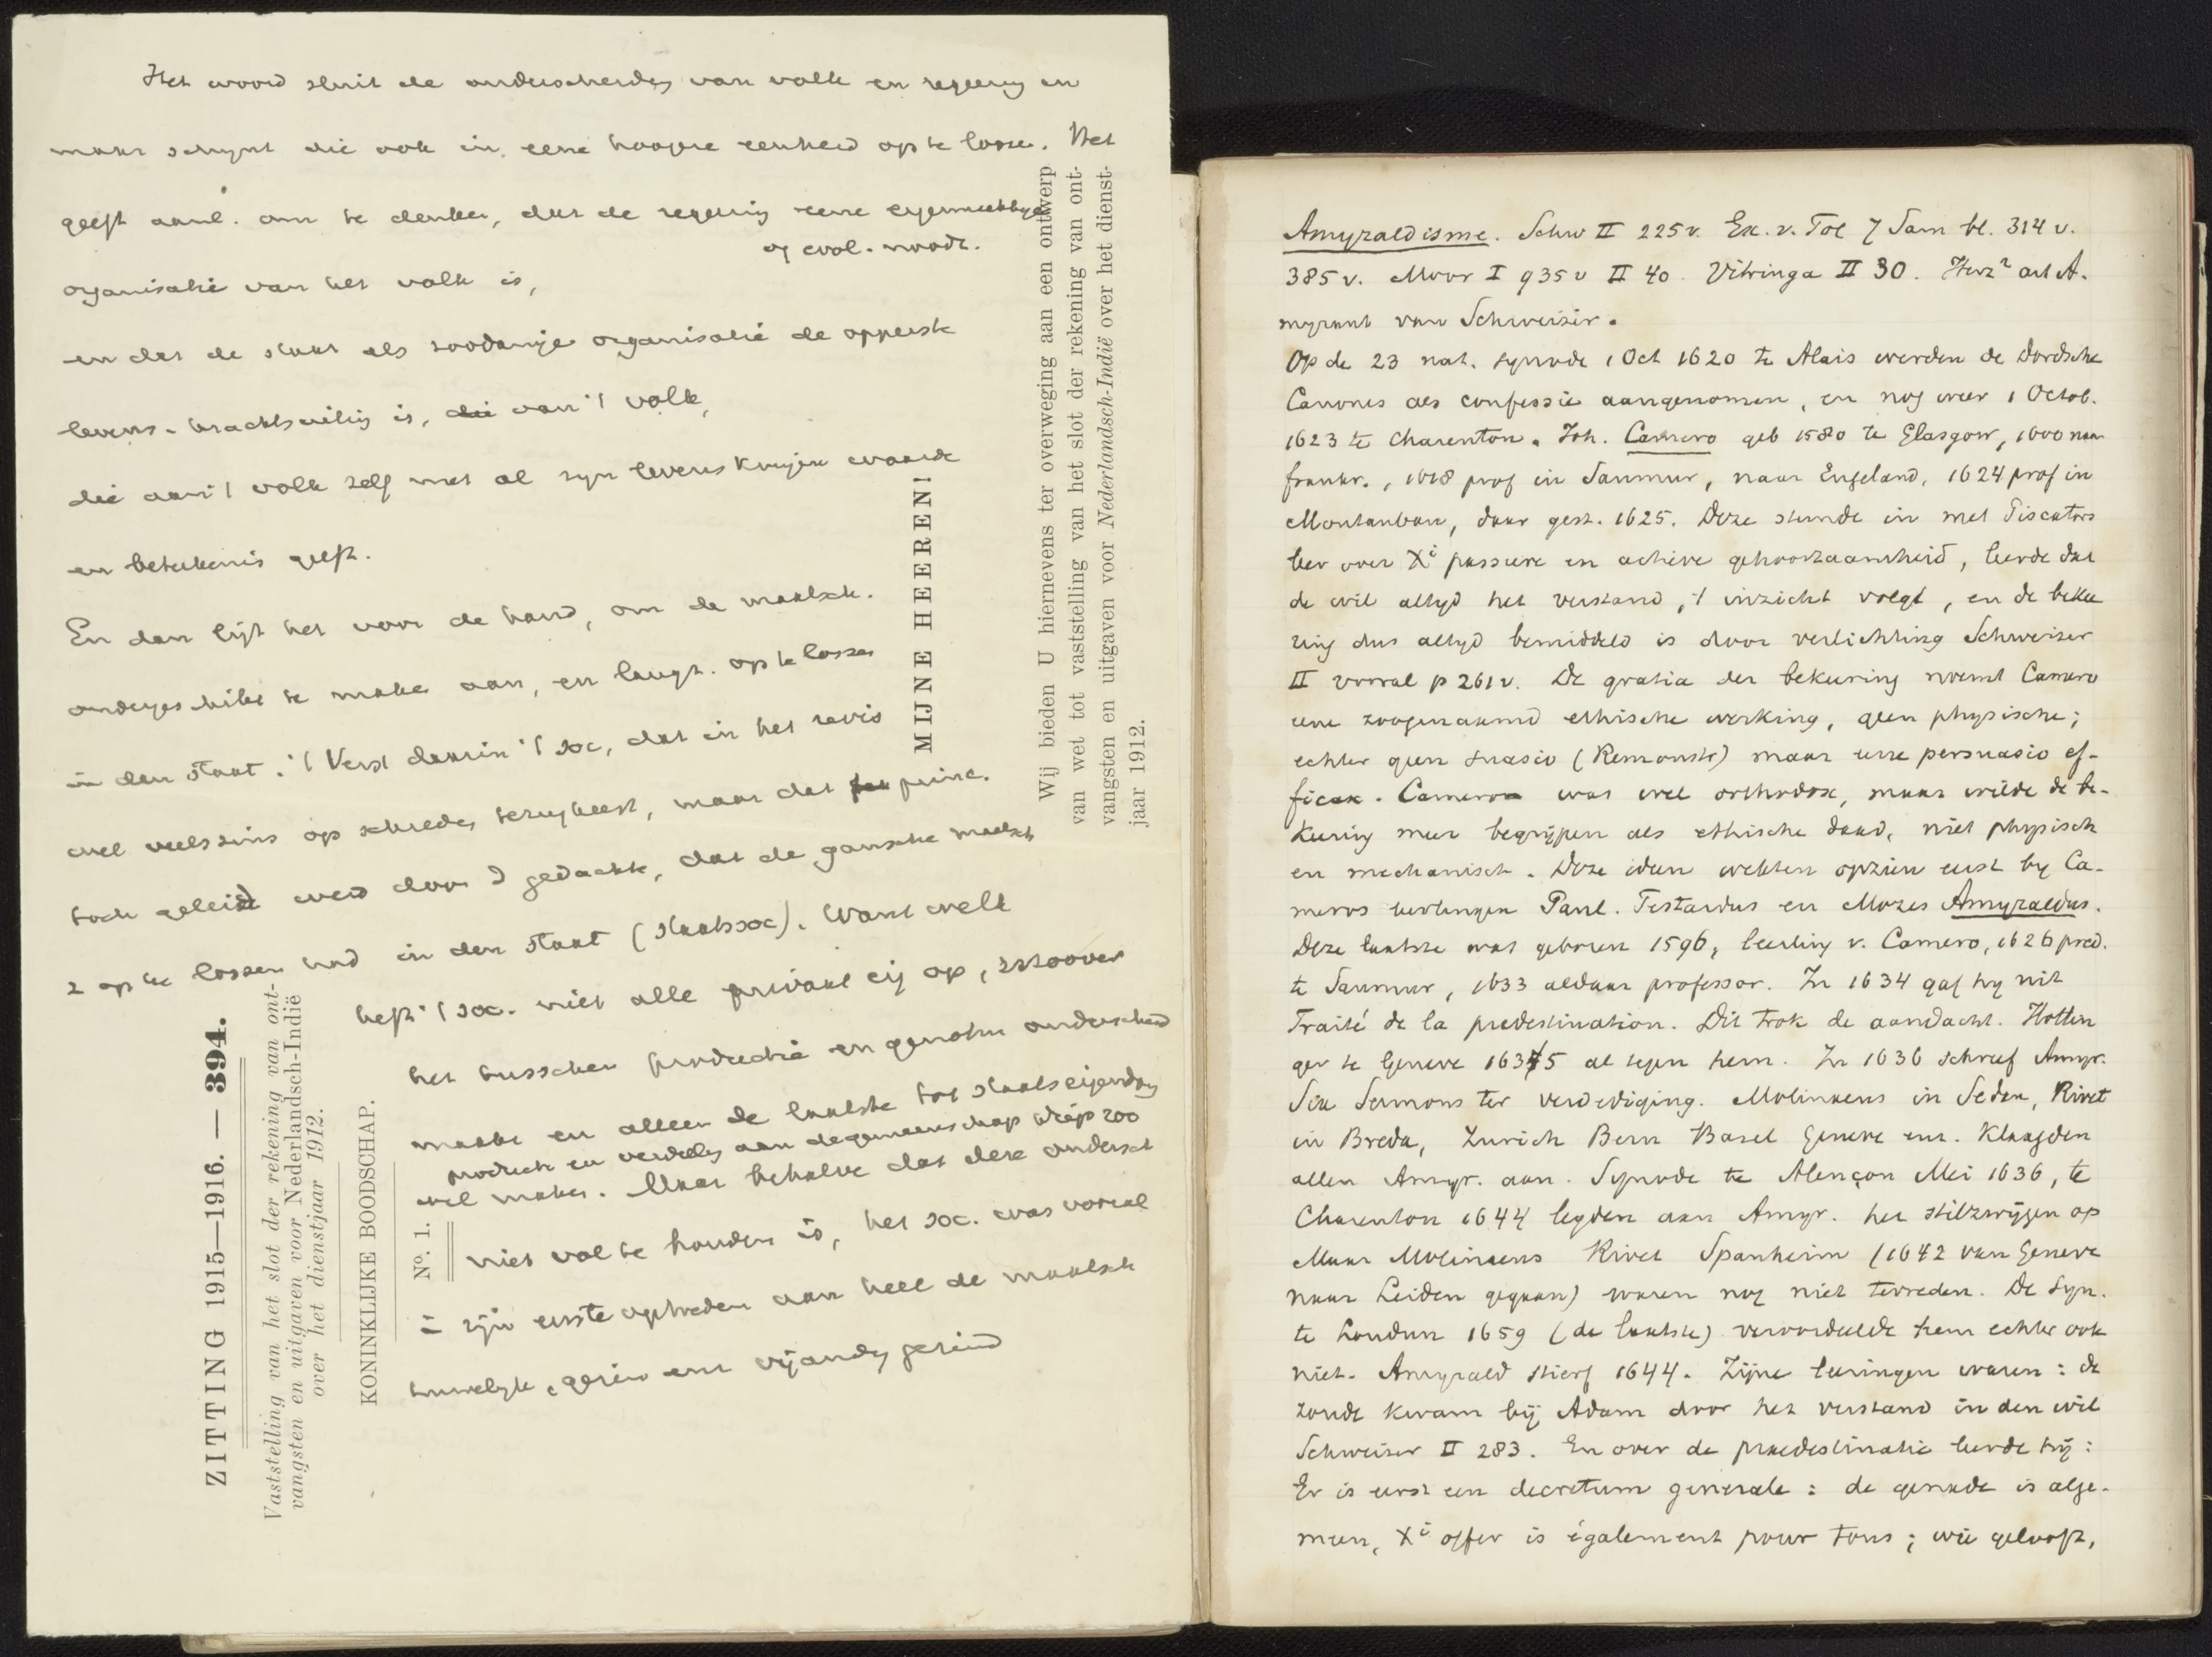 Het woord sluit de onderscheidg van volk en regeering in
maar schijnt die ook in eene hoogere eenheid op te lossen. Het
geeft aanl. om te denken, dat de regeering eene eigenmachtige
of evol. noodz.
organisatie van het volk is,
en dat de staat als zoodanige organisatie de opperste
levens- krachtsuiting is, die van 't volk,
die aan 't volk zelf met al zijn levenskringen waarde
en beteekenis geeft.
En dan ligt het voor de hand, om de maatsch.
ondergeschikt te maken aan, en langz. op te lossen
in den Staat. 't
wel veelszins op schreden terugkeert, maar dat princ.
toch geleid werd door d gedachte, dat de gansche maatsch
z op te lossen had in den Staat (Staatssoc). Want welk
heft 't soc. niet alle privaat eig op,
het tusschen productie en genotm onderscheid
maakt en alleen de laatste tot staatseigendom
product en verdeelg aan de gemeenschap
wil maken. Maar behalve dat deze ondersch
niet vol te houden is, het soc. was vooral
in zijn eerste optreden aan heel de maatsch
huwelijk, gezin enz vijandig gezind
MIJNE HEEREN!
Wij bieden U hiernevens ter overweging aan een ontwerp
van wet tot vaststelling van het slot der rekening van ont-
vangsten en uitgaven voor Nederlandsch-Indië over het dienst-
jaar 1912.
ZITTING 1915—1916. — 394.
Vaststelling van het slot der rekening van ont-
vangsten en uitgaven voor Nederlandsch-Indië
over het dienstjaar 1912.
KONINKLIJKE BOODSCHAP.
No. 1.
Amyraldisme. Schw II 225v. Ex. v. Tol 7 Sam bl. 314 v.
385v. Moor I 935v II 40. Vitringa II 30. Herz² art A.
myraut van Schweizer.
Op de 23 nat. synode 1 Oct 1620 te Alais werden de Dordsche
Canones als confessie aangenomen, en nog weer 1 Octob.
1623 te Charenton. Joh. Camero geb 1580 te Glasgow, 1600 naar
frankr., 1618 prof in Saumur, naar Engeland, 1624 prof in
Montauban, daar gest. 1625. Deze stemde in met Piscators
leer over Xi passieve en actieve gehoorzaamheid, leerde dat
de wil altijd het verstand, 't inzicht volgt, en de bekee
ring dus altijd bemiddeld is door verlichting Schweizer
II vooral p 261v. De gratia der bekeering noemt Camero
eene zoogenaamd ethische werking, geen physische;
echter geen suasio (Remonstr) maar eene persuasio ef-
ficax. Camero was wel orthodox, maar wilde de be-
keering meer begrijpen als ethische daad, niet physisch
en mechanisch. Deze ideen wekten opzien eerst by Ca-
meros leerlingen Paul. Testardus en Mozes Amyraldus.
Deze laatste was geboren 1596, leerling v. Camero, 1626 pred.
te Saumur, 1633 aldaar professor. In 1634 gaf hy uit
Traité de la predestination. Dit trok de aandacht. Hottin
ger te Geneve 1635 al tegen hem. In 1636 schreef Amyr.
Six Sermons ter verdediging. Molinaeus in Sedan, Rivet
in Breda, Zurich Bern Basel Geneve enz. Klaagden
allen Amyr. aan. Synode te Alençon Mei 1636, te
Charenton 1644 legden aan Amyr. het stilzwijgen op
Maar Molinaeus Rivet Spanheim (1642 van Geneve
naar Leiden gegaan) waren nog niet tevreden. De Syn.
te Loudun 1659 (de laatste) veroordeelde hem echter ook
niet. Amyrald stierf 1644. Zijne leeringen waren: de
zonde kwam bij Adam door het verstand in den wil
Schweizer II 283. En over de praedestinatie leerde hij:
Er is eerst een decretum generale: de genade is alge-
meen, Xi offer is également pour tous; wie gelooft,